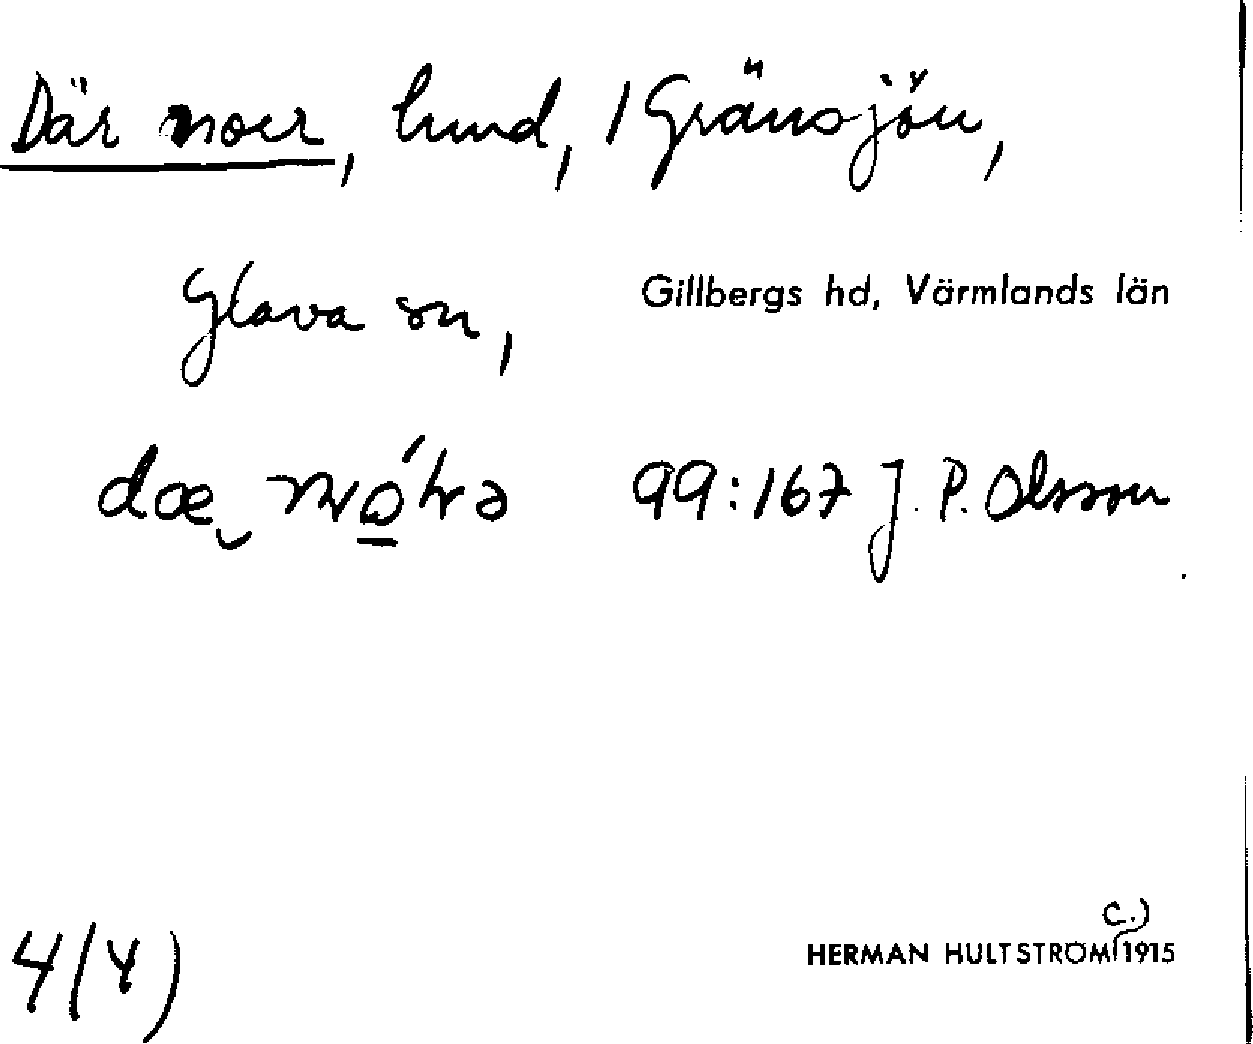 Där noer, lund, / Gränsjön,
Glava sn, Gillbergs hd, Värmlands län
99:167 J. P. Olsson
c.)
HERMAN HULTSTRÖM 1915
4(4)